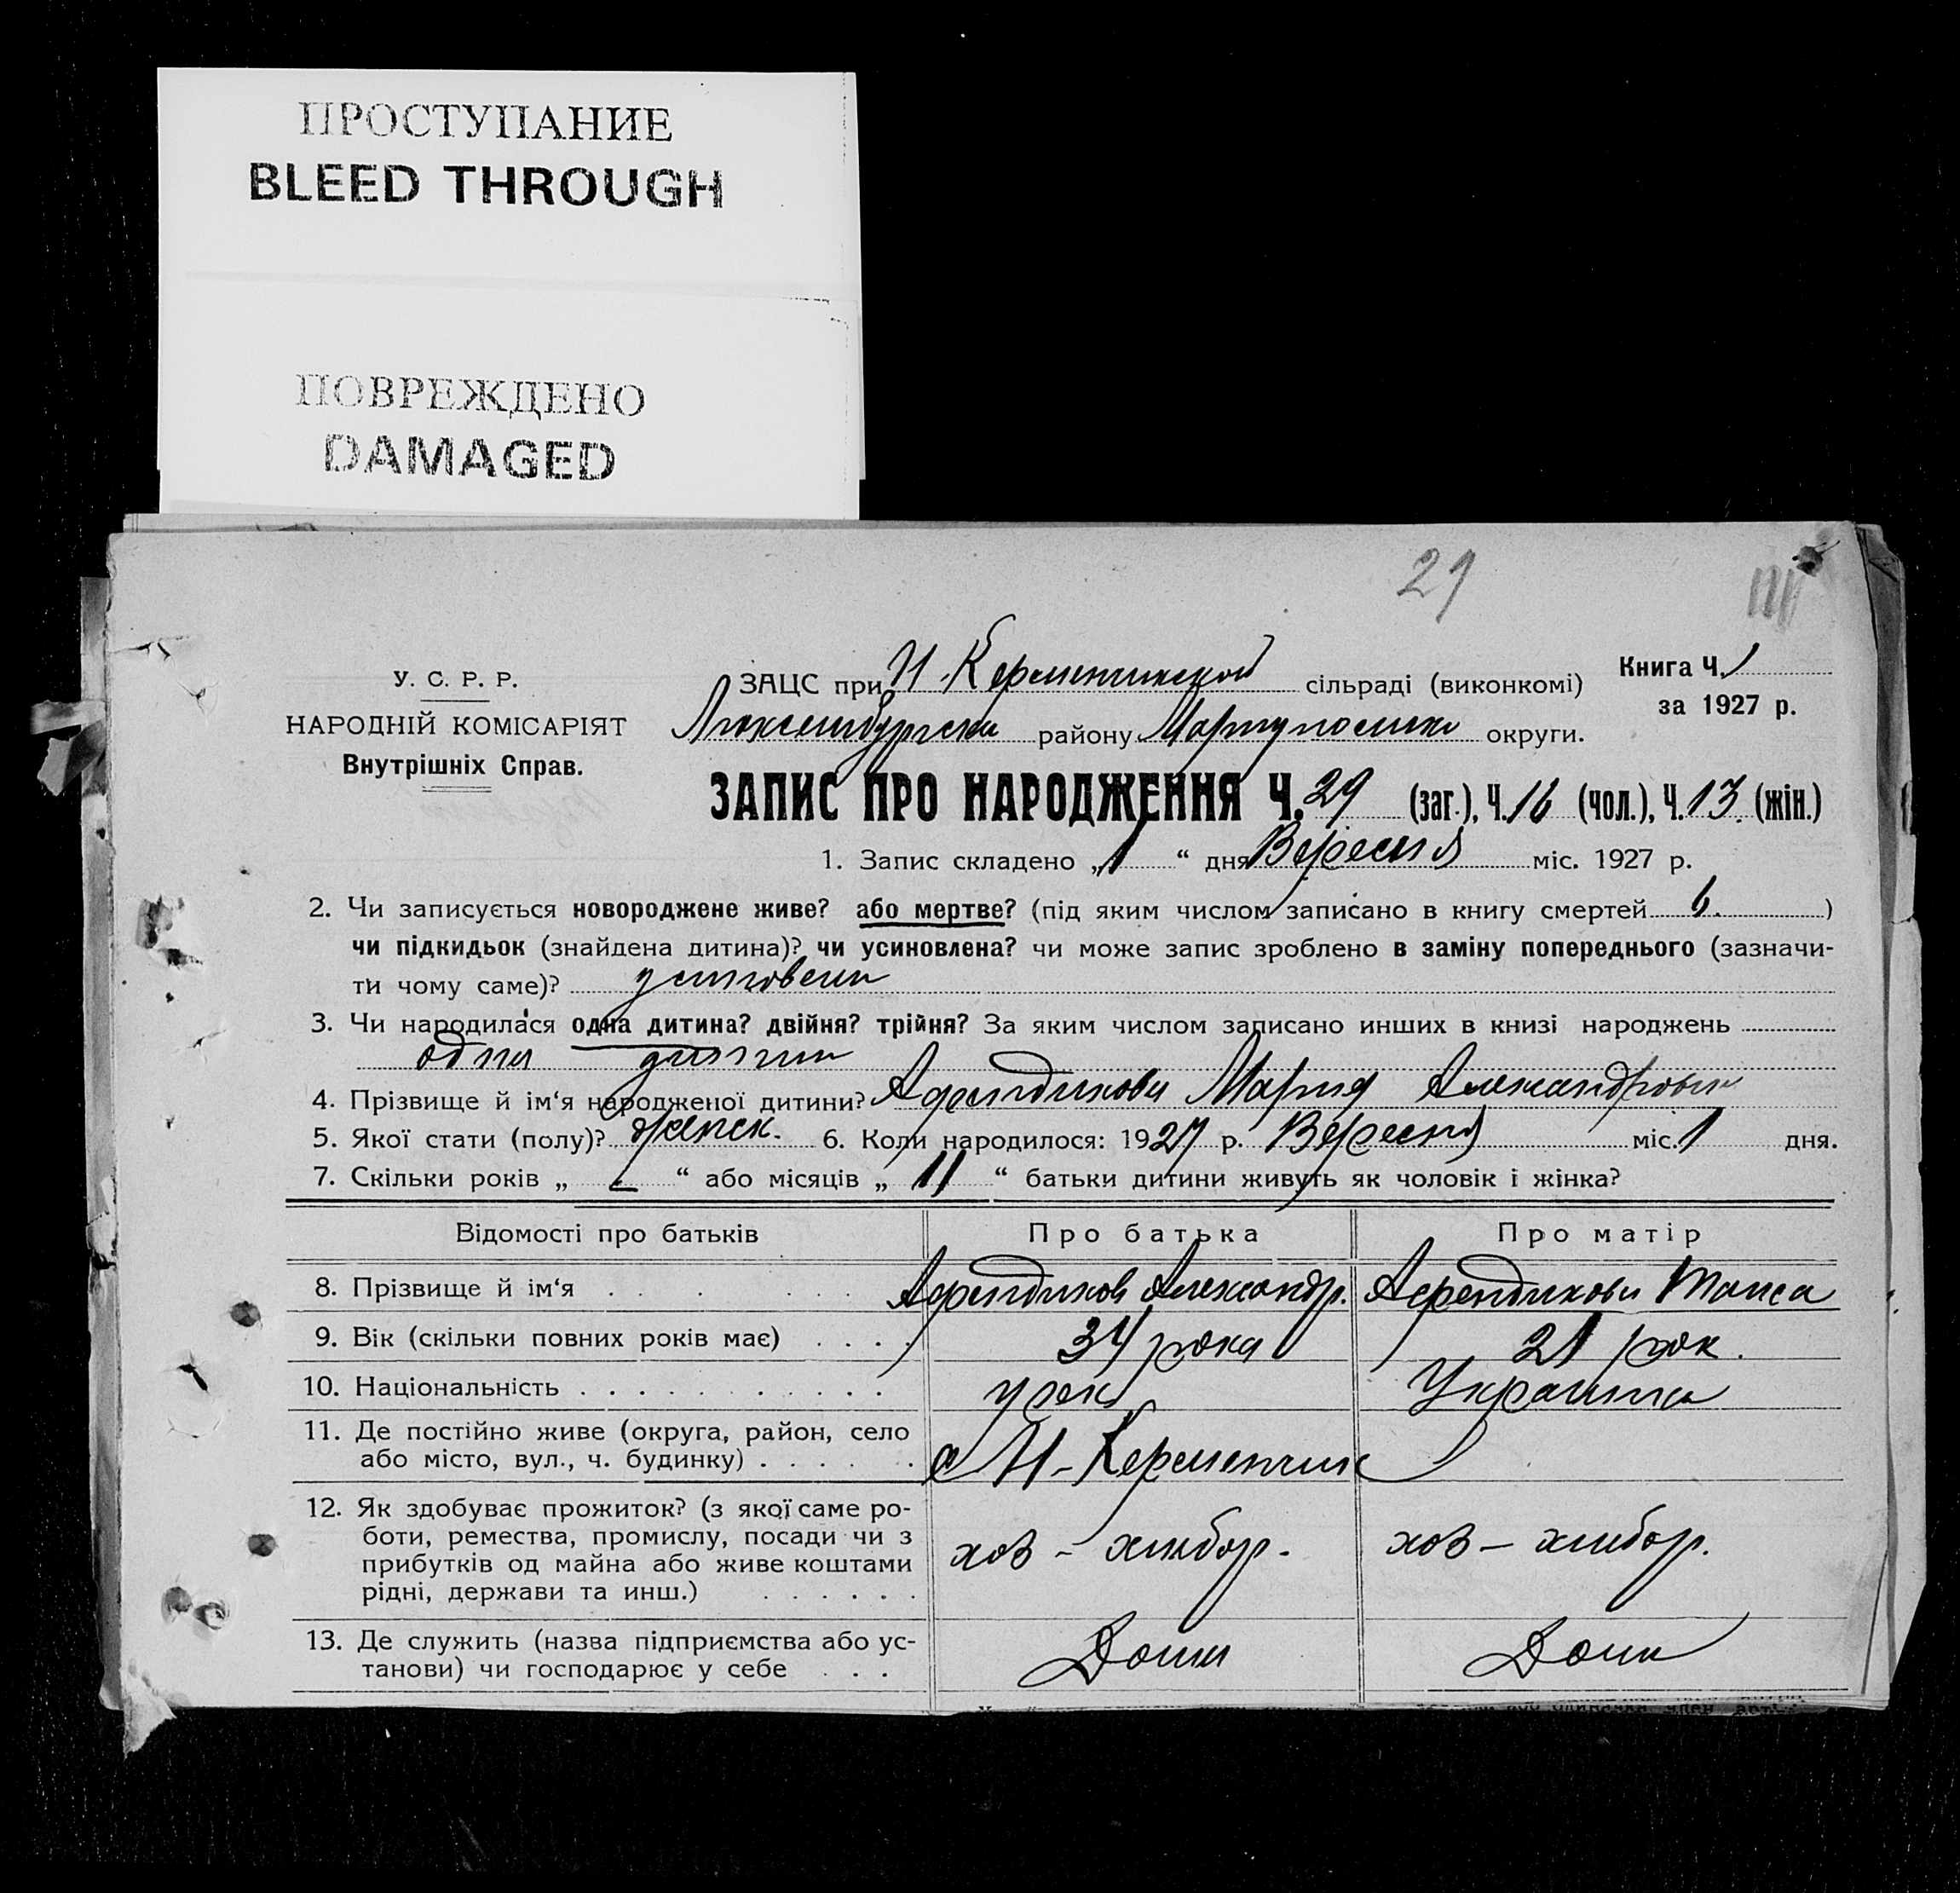 ПРОСТУПАНИЕ
BLEED THROUGH
ПОВРЕЖДЕНО
DAMAGED
29
У. С. Р. Р.
НАРОДНІЙ КОМІСАРІЯТ
Внутрішніх Справ.
ЗАЦС при Н-Керменчикской сільраді (виконкомі)
Книга Ч. 1
за 1927 р.
Люксембургськ району Мариупольск округи.
ЗАПИС ПРО НАРОДЖЕННЯ Ч. 29 (заг.), Ч. 16 (чол.), Ч. 13. (жін.)
1. Запис складено „1“ дня Вересня міс. 1927 р.
2. Чи записується новороджене живе? або мертве? (під яким числом записано в книгу смертей 6.)
чи підкидьок (знайдена дитина)? чи усиновлена? чи може запис зроблено в заміну попереднього (зазначи-
ти чому саме)?
3. Чи народилася одна дитина? двійня? трійня? За яким числом записано инших в книзі народжень
одна дитина
4. Прізвище й ім‘я народженої дитини? Афендикова Мария Александровна
5. Якої стати (полу)? женск. 6. Коли народилося: 1927 р. Вересня міс. 1 дня.
7. Скільки років „ – “ або місяців „ 11 “ батьки дитини живуть як чоловік і жінка?
Відомості про батьків Про батька Про матір
8. Прізвище й ім‘я . . . . . Афендиков Александр. Афендикова Таиса
9. Вік (скільки повних років має) . . . . 34 рока 21 рок.
10. Національність . . . . . . . . . . . грек Украинка
11. Де постійно живе (округа, район, село
або місто, вул., ч. будинку) . . . . . . с Н-Керменчик
12. Як здобуває прожиток? (з якої саме ро-
боти, ремества, промислу, посади чи з
прибутків од майна або живе коштами
рідні, держави та инш.) . . . . . . хоз - хлибор. хоз – хлибор.
13. Де служить (назва підприємства або ус-
танови) чи господарює у себе . . . Дома Дома